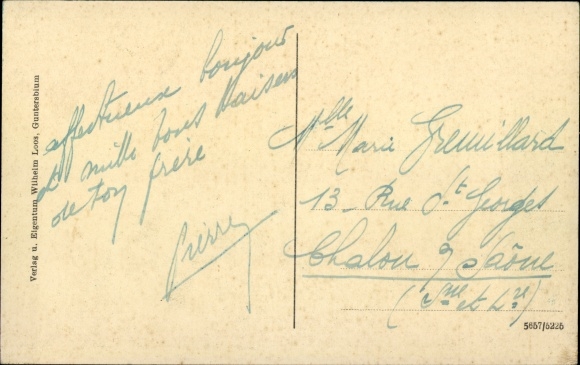 Verlag u. Eigentum Wilhelm Loos, Guntersblum
affectueux bonjour
et mille bons baisers
de ton frère
Pierre
Mlle Marie Gremillard
13 - Rue St Georges
Chalon s/ Saône
(Sne et Lre)
5657/5225